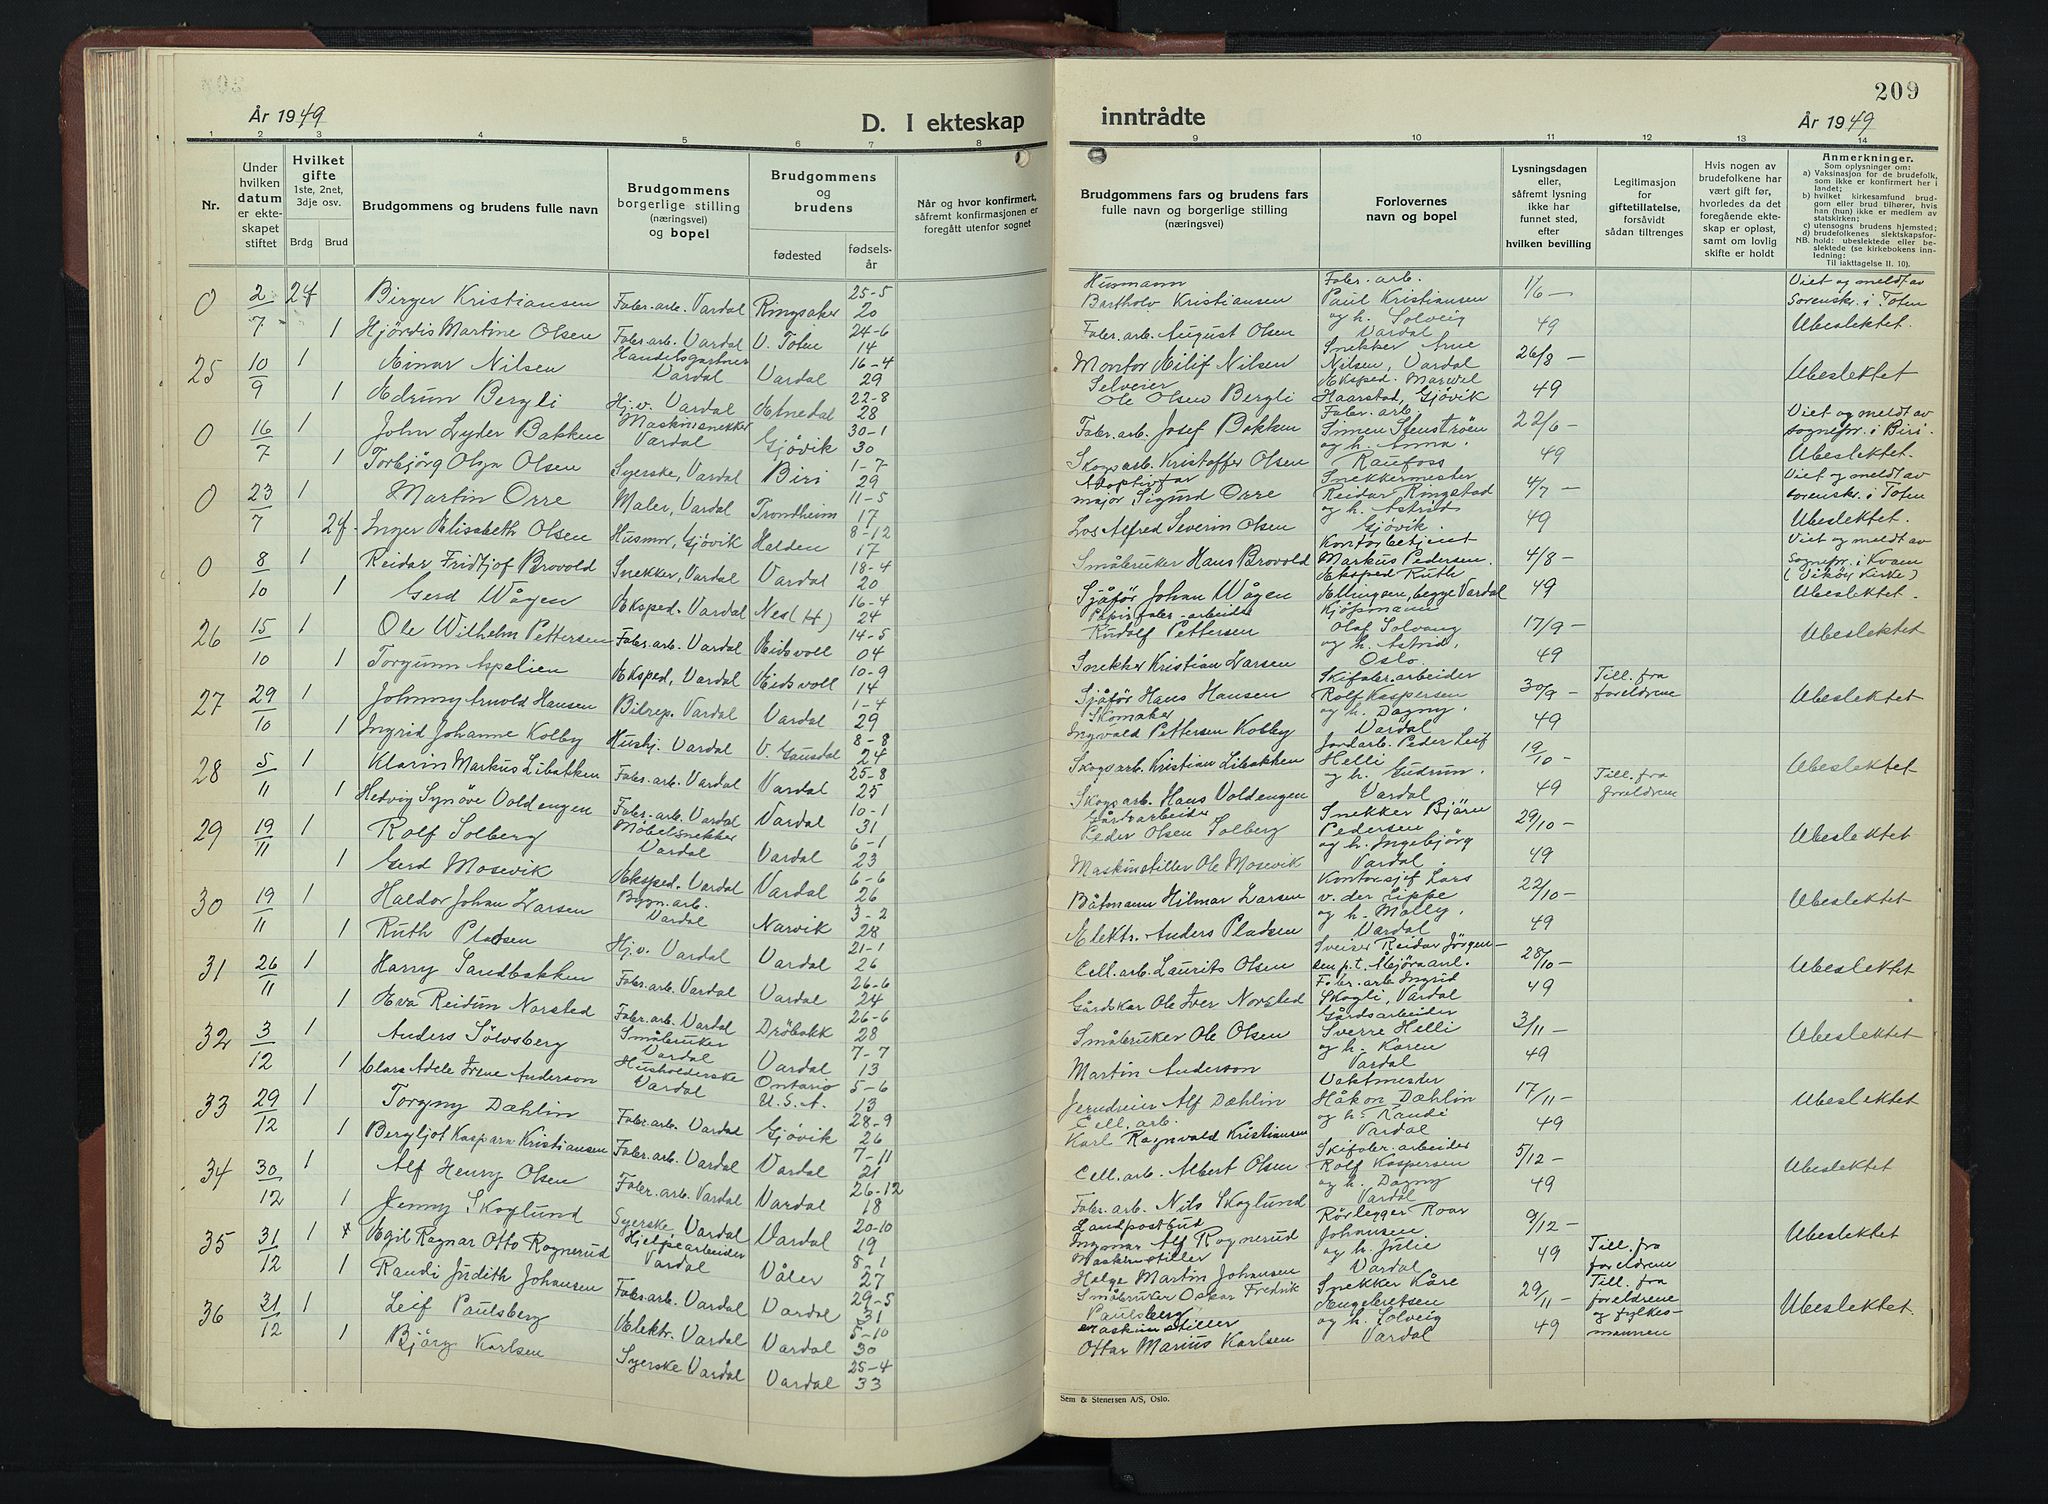 År 1949
D. I ekteskap
1 2 3 4 5 6 7 8
Nr.
Under hvilken datum er ekteskapet stiftet
Hvilket gifte 1ste, 2net, 3dje osv.
Brdg Brud
Brudgommens og brudens fulle navn
Brudgommens borgerlige stilling (næringsvei) og bopel
Brudgommens og brudens
fødested fødselsår
Når og hvor konfirmert, såfremt konfirmasjonen er foregått utenfor sognet
0 2/7 2g Birger Kristiansen Fabr.arb. Vardal Ringsaker 25-5 20
1 Hjördis Martine Olsen Fabr.arb. Vardal V. Toten 24-6 14
25 10/9 1 Einar Nilsen Handelsgartner Vardal Vardal 16-4 29
1 Edrun Bergli Hj.v. Vardal Etnedal 22-8 28
0 16/7 1 John Lyder Bakken Maskinsnekker Vardal Gjøvik 30-1 30
1 Torbjörg Olga Olsen Syerske, Vardal Biri 1-7 29
0 23/7 1 Martin Orre Maler, Vardal Trondheim 11-5 17
2g. Inger Elisabeth Olsen Husmor, Gjøvik Halden 8-12 17
0 8/10 1 Reidar Fridtjof Brovold Snekker, Vardal Vardal 18-4 20
1 Gerd Wågen Eksped. Vardal Nes (H) 16-4 24
26 15/10 1 Ole Wilhelm Pettersen Fabr.arb. Vardal Eidsvoll 14-5 04
1 Torgunn Aspelien Eksped, Vardal Eidsvoll 10-9 14
27 29/10 1 Johnny Arnold Hansen Bilrep. Vardal Vardal 1-4 29
1 Ingrid Johanne Kolby Hushj. Vardal V. Gausdal 8-8 24
28 5/11 1 Klarin Markus Libakken Fabr.arb. Vardal Vardal 25-8 25
1 Hedvig Synöve Voldengen Fabr.arb. Vardal Vardal 10-1 31
29 19/11 1 Rolf Solberg Möbelsnekker Vardal Vardal 6-1 23
1 Gerd Mosevik Eksped. Vardal Vardal 6-6 26
30 19/11 1 Haldor Johan Larsen Bygn.arb. Vardal Narvik 3-2 28
1 Ruth Pladsen Hj.v. Vardal Vardal 21-1 26
31 26/11 1 Harry Sandbakken Fabr.arb. Vardal Vardal 26-6 24
1 Eva Reidun Norsted Fabr.arb. Vardal Dröbakk 26-6 28
32 3/12 1 Anders Sölvsberg Småbruker Vardal Vardal 7-7 13
1 Clara Adele Irene Anderson Husholderske Vardal Ontario U.S.A. 5-6 13
33 29/12 1 Torgny Dæhlin Fabr.arb. Vardal Gjøvik 28-9 26
1 Bergljot Kaspara Kristiansen Fabr.arb. Vardal Vardal 7-11 21
34 30/12 1 Alf Henry Olsen Fabr.arb. Vardal Vardal 26-12 18
1 Jenny Skoglund Syerske, Vardal Vardal 20-10 19
35 31/12 1 Egil Ragnar Otto Rognerud Hjelpearbeider Vardal Våler 8-1 27
1 Randi Judith Johansen Fabr.arb. Vardal Vardal 29-5 31
36 31/12 1 Leif Paulsberg Elektr. Vardal Vardal 5-10 30
1 Björg Karlsen Syerske Vardal Vardal 25-4 33
209
inntrådte
År 1949
9 10 11 12 13 14
Brudgommens fars og brudens fars fulle navn og borgerlige stilling (næringsvei)
Forlovernes navn og bopel
Lysningsdagen eller, såfremt lysning ikke har funnet sted, efter hvilken bevilling
Legitimasjon for giftetillatelse, forsåvidt sådan tiltrenges
Hvis nogen av brudefolkene har vært gift før, hvorledes da det foregående ekteskap er opløst, samt om lovlig skifte er holdt
Anmerkninger.
Som oplysninger om:
a) Vaksinasjon for de brudefolk, som ikke er konfirmert her i landet;
b) hvilket kirkesamfund brudgom eller brud tilhører, hvis han (hun) ikke er medlem av statskirken;
c) utensogns brudens hjemsted;
d) brudefolkenes slektskapsforhold: ubeslektede eller beslektede (se kirkebokens innledning:
NB. Til iakttagelse II. 10).
Husmann Bartholv Kristiansen Fabr.arb. Paul Kristiansen og h. Solveig Vardal 1/6 – 49 Viet og meldt av Sorenskr. i Toten Ubeslektet.
Fabr.arb. August Olsen
Montør Eilif Nilsen Snekker Arne Nilsen, Vardal 26/8 – 49 Ubeslektet
Selveier Ole Olsen Bergli Eksped. Marwil Haarstad, Gjövik
Fabr.arb. Josef Bakken Fabr.arb. Simen Stenströen og h. Anna. Raufoss 22/6 – 49 Viet og meldt av sognepr. i Biri. Ubeslektet.
Skogsarb. Kristoffer Olsen
Adoptivfar major Sigurd Orre Snekkermester Reidar Ringstad og h. Astrid Gjövik. 4/7 – 49 Viet og meldt av sorenskr. i Toten Ubeslektet.
Los Alfred Severin Olsen
Småbruker Hans Brovold Kontorbetjent Markus Pedersen. 4/8 – 49 Viet og meldt av Sognepr. i Kvam (Vikøy Kirke) Ubeslektet.
Sjåför Johan Wågen Eksped Ruth Ellingsen, begge Vardal
Papirfabr.arbeider Rudolf Pettersen Kjöpmann Olaf Solvang og h. Astrid, Oslo. 17/9 – 49 Ubeslektet
Snekker Kristian Larsen
Sjåför Hans Hansen Skifabr.arbeider Rolf Kaspersen og h. Dagny. Vardal 30/9 – 49 Till. fra foreldrene Ubeslektet
Skomaker Ingvald Pettersen Kolby
Skogsarb. Kristian Libakken Jordarb. Peder Leif Helli og h. Gudrun. Vardal 19/10 – 49 Till. fra foreldrene Ubeslektet
Skogsarb. Hans Voldengen
Gårdsarbeider Peder Olsen Solberg Snekker Björn Pedersen og h. Ingebjörg Vardal. 29/10 – 49 Ubeslektet
Maskinstiller Ole Mosevik
Båtmann Hilmar Larsen Kontorsjef Lars v. der Lippe og h. Molly, Vardal 22/10 – 49 Ubeslektet
Elektr. Anders Pladsen
Cell.arb. Laurits Olsen Sveiser Reidar Jörgensen p.t. Mjörænl. 28/10 – 49 Ubeslektet
Gårdskar Ole Iver Norsted Fabr.arb Ingrid Skogli, Vardal
Småbruker Ole Olsen Gårdsarbeider Sverre Helli og h. Karen Vardal 3/11 – 49 Ubeslektet
Martin Anderson
Jerndreier Alf Dæhlin Vaktmester Håkon Dæhlin og h. Randi Vardal 17/11 – 49 Ubeslektet
Cell.arb. Karl Ragnvald Kristiansen
Cell.arb. Albert Olsen Skifabr.arbeider Rolf Kaspersen og h. Dagny Vardal 5/12 – 49 Ubeslektet
Fabr.arb. Nils Skoglund
Landpostbud Ingvar Alf Rognerud Rørlegger Roar Johansen og h. Julie Vardal 9/12 – 49 Till. fra foreldrene Ubeslektet
Maskinstiller Helge Martin Johansen
Småbruker Oskar Fredrik Paulsberg Snekker Kåre Engebretsen og h. Solveig Vardal 29/11 – 49 Till. fra foreldrene og fylkesmannen Ubeslektet.
Maskinstiller Ottar Marius Karlsen
Sem & Stenersen A/S, Oslo.